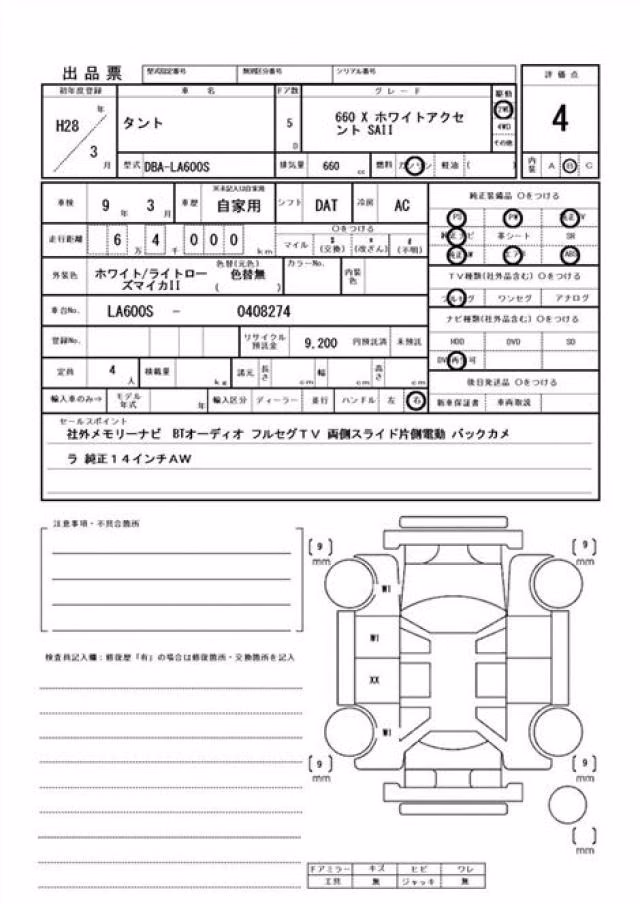 出品票 型式指定番号 類別区分番号 シリアル番号
評価点
初年度登録 車名 ドア数 グレード 駆動
H28 年 3 月
タント
5 D
660 X ホワイトアクセ
ント SAII
2WD
4WD
その他
4
型式 DBA-LA600S 排気量 660 cc 燃料 ガソリン 軽油 ( )
内装 A B C
車検 9 年 3 月 車歴 ※未記入は自家用 自家用 シフト DAT 冷房 AC
純正装備品 ○をつける
PS PW 純正TV
純正ナビ 革シート SR
純正AW エアB ABS
走行距離 6 万 4 千 0 0 0 km
○をつける
マイル $ (交換) * (改ざん) # (不明)
外装色 ホワイト/ライトロー
ズマイカII
色替(元色)
色替無
( )
カラーNo. 内装色
TV種類(社外品含む) ○をつける
フルセグ ワンセグ アナログ
車台No. LA600S - 0408274
ナビ種類(社外品含む) ○をつける
HDD DVD SD
DVD再生可
登録No. リサイクル預託金 9,200 円預託済 未預託
定員 4 人 積載量 kg 諸元 長さ cm 幅 cm 高さ cm
後日発送品 ○をつける
新車保証書 車両取説
輸入車のみ⇒ モデル年式 年 輸入区分 ディーラー 並行 ハンドル 左 右
セールスポイント
社外メモリーナビ BTオーディオ フルセグTV 両側スライド片側電動 バックカメ
ラ 純正14インチAW
注意事項・不具合箇所
検査員記入欄:修復歴「有」の場合は修復箇所・交換箇所を記入
[9] mm
[9] mm
W1
W1
XX
W1
[9] mm
[9] mm
[ ] mm
ドアミラー キズ ヒビ ワレ
工具 無 ジャッキ 無